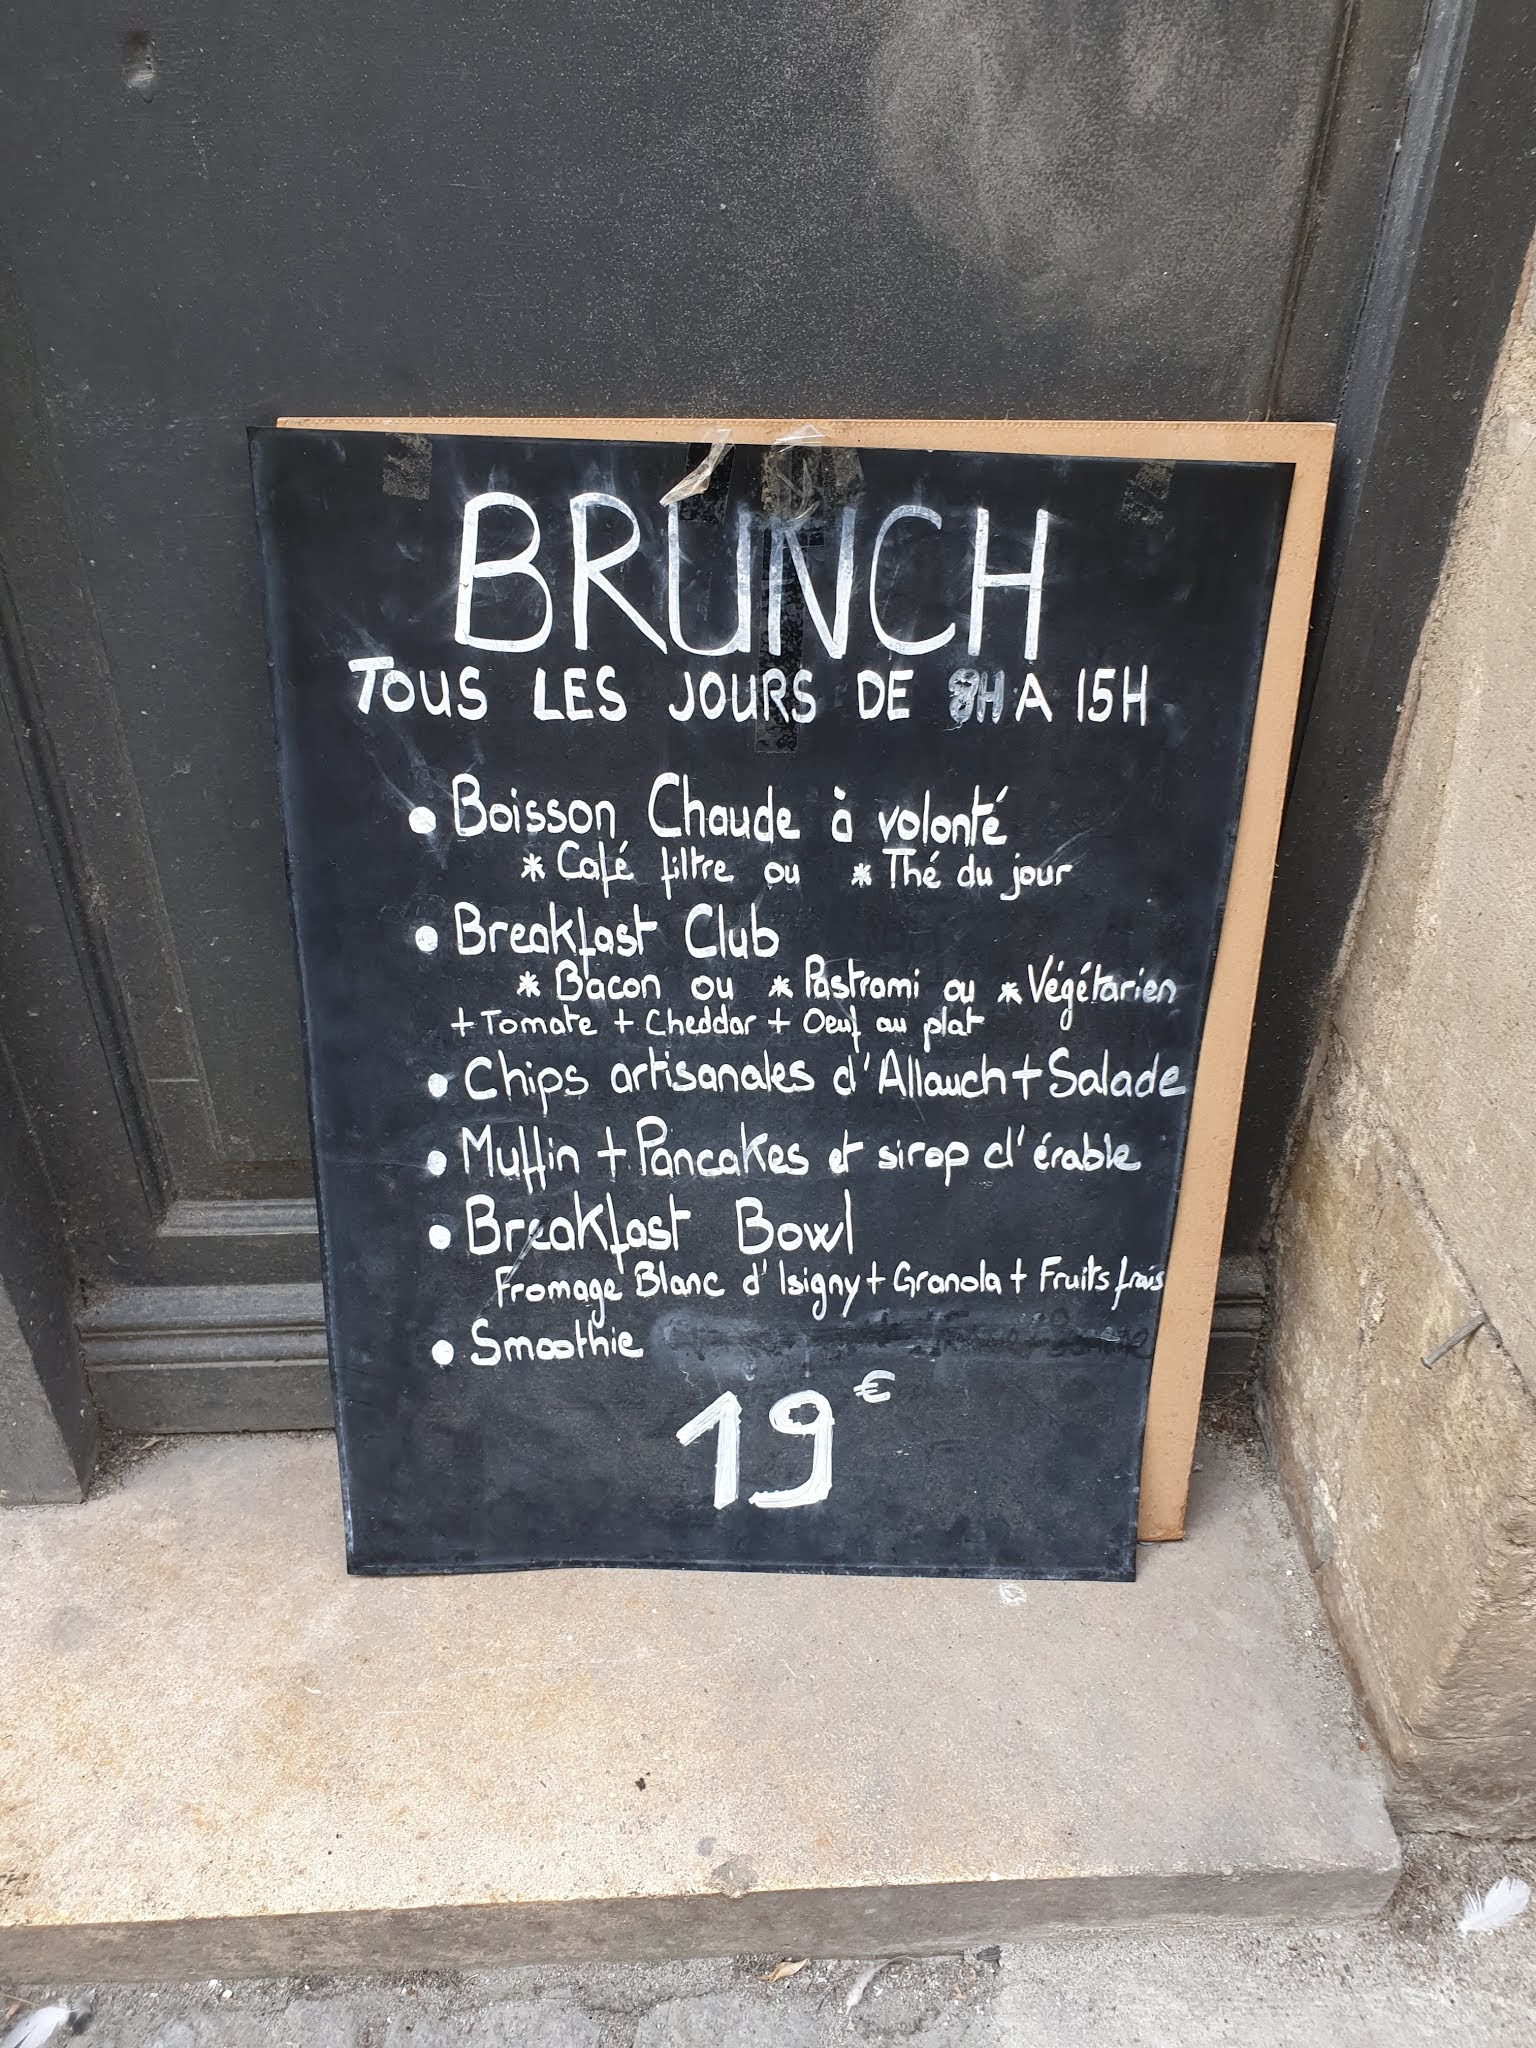 BRUNCH
TOUS LES JOURS DE H A 15H
• Boisson Chaude à volonté
* Café filtre ou * Thé du jour
• Breakfast Club
* Bacon ou * Pastrami ou * Végétarien
+ Tomate + Cheddar + Oeuf au plat
• Chips artisanales d'Allauch + Salade
• Muffin + Pancakes et sirop d'érable
• Breakfast Bowl
Fromage Blanc d'Isigny + Granola + Fruits frais
• Smoothie
19€